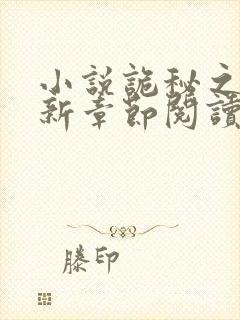 小説詭秘之
新章節閱讀
滕印